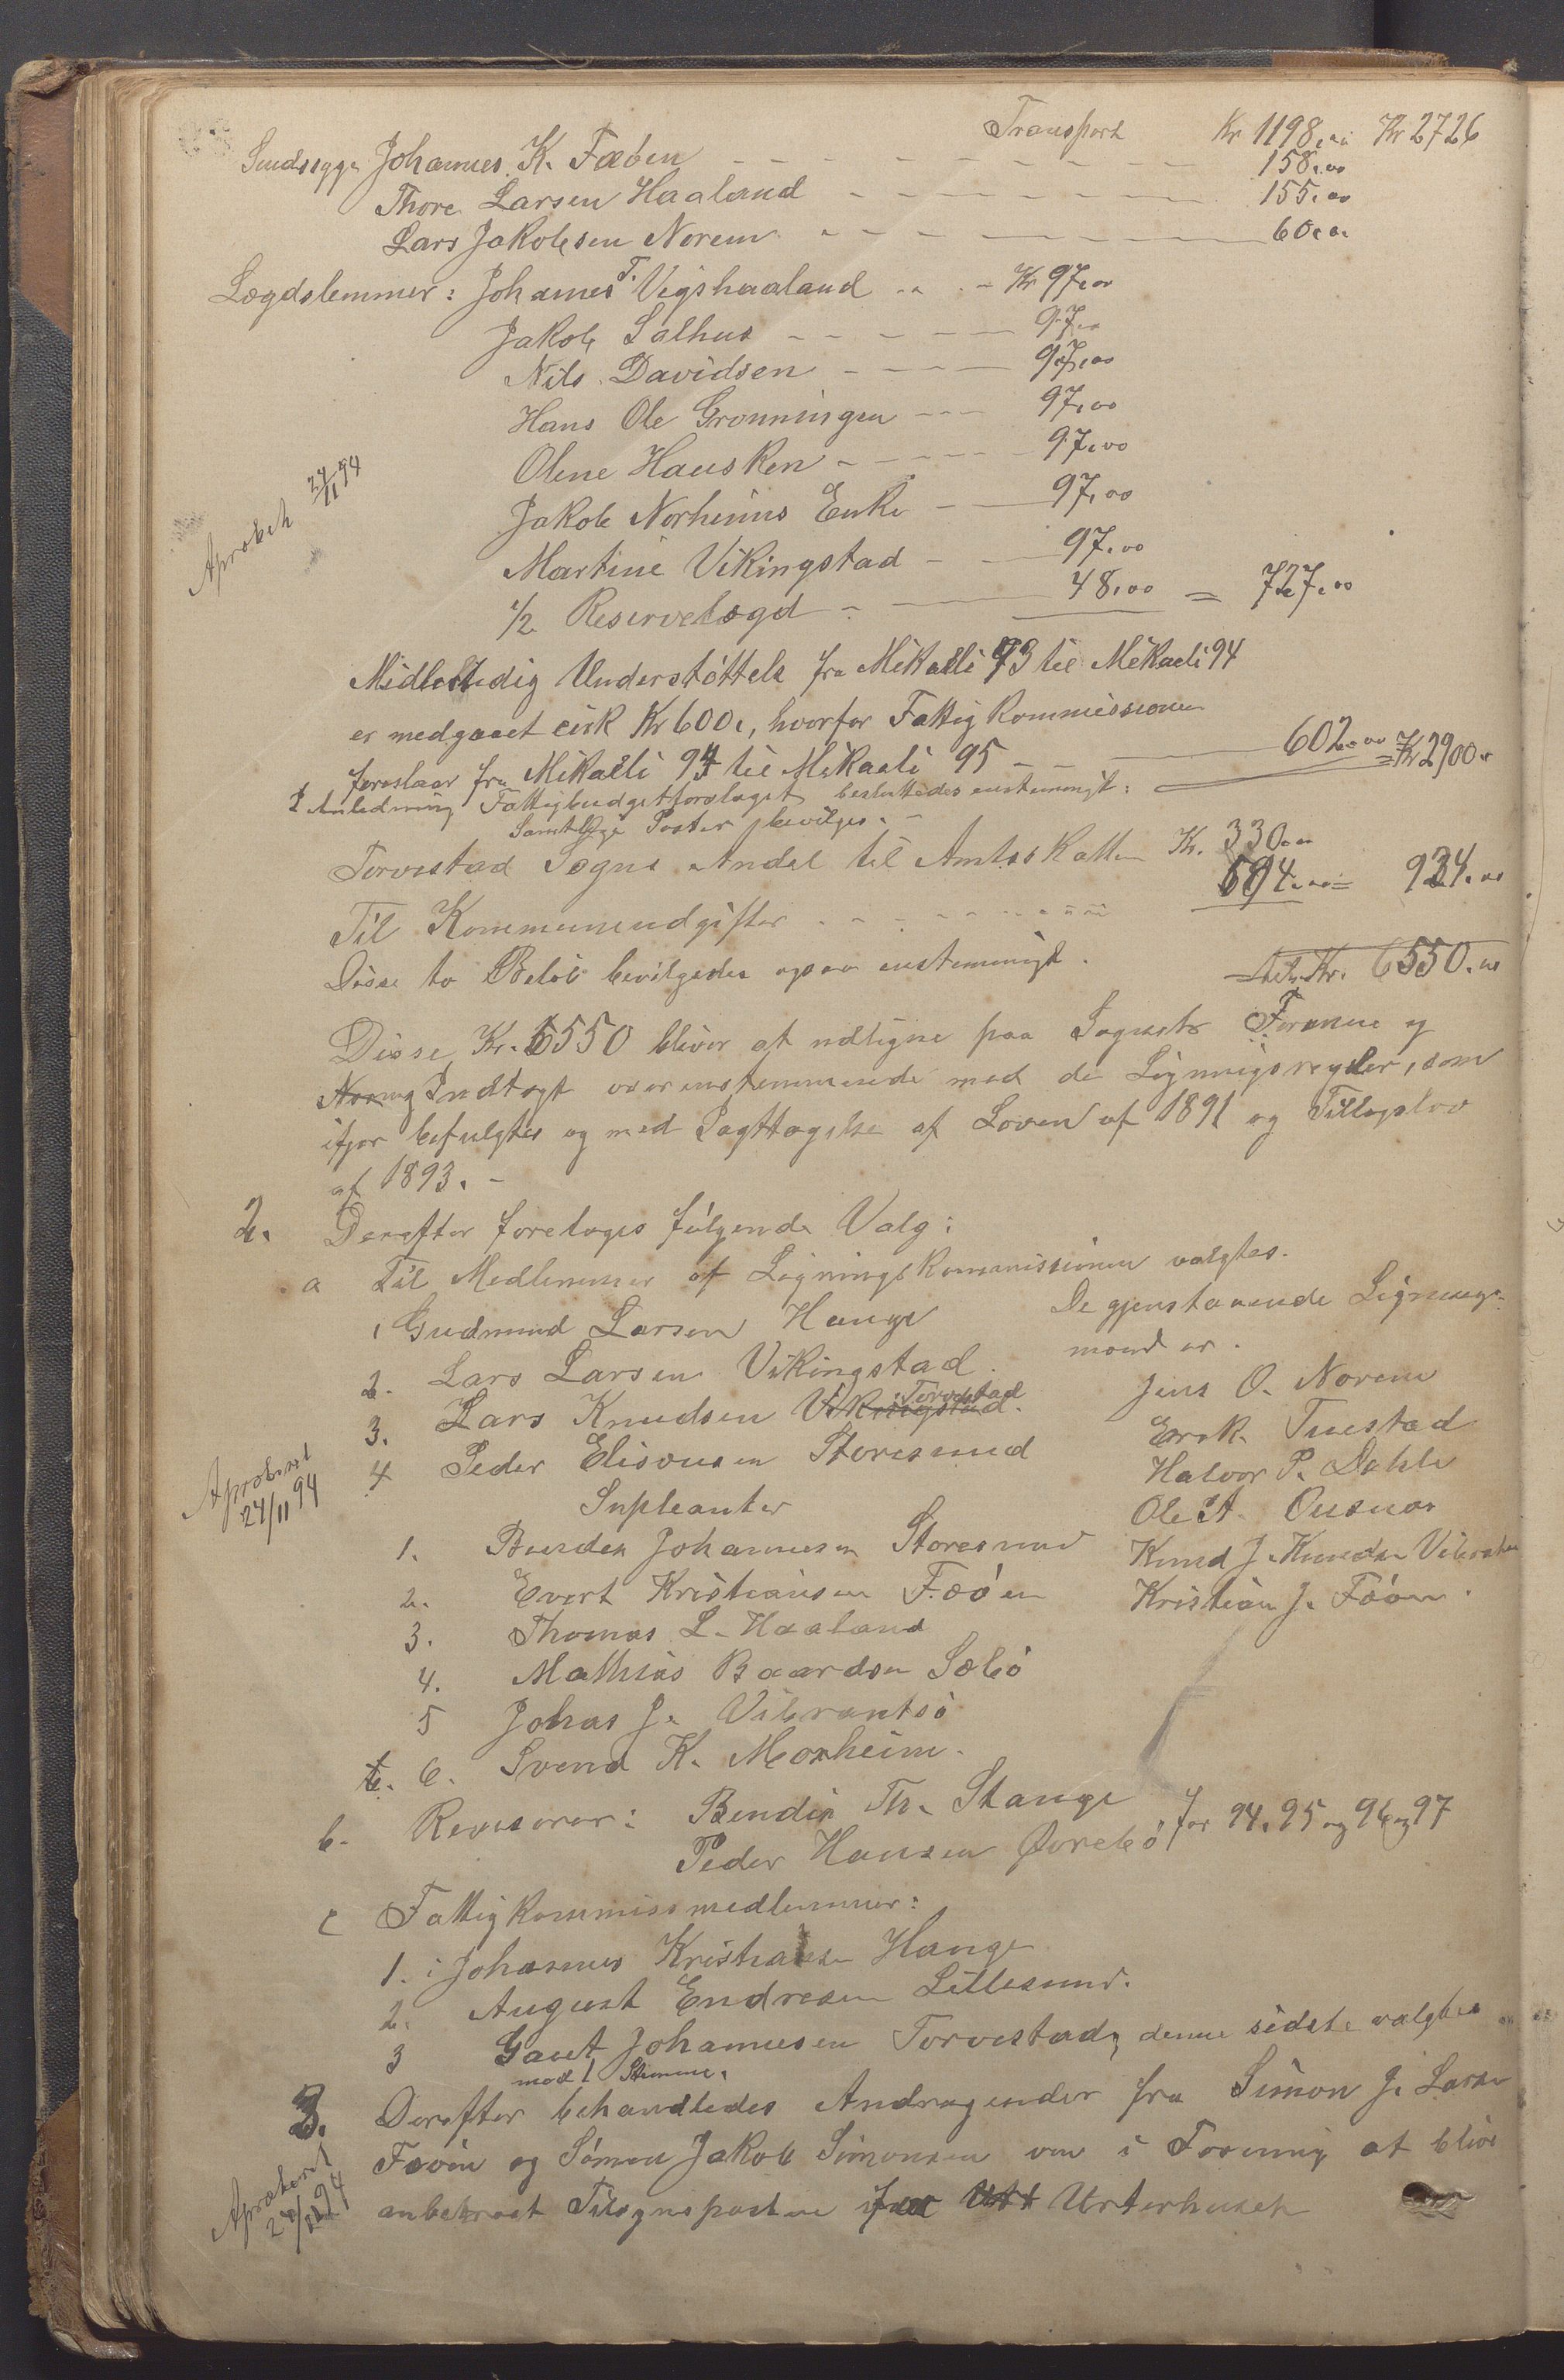 Transport Kr 1198,00 Kr 2726
Sindssyge Johannes K. Fæøen - - - 158,00
Thore Larsen Haaland - - - 155,00
Lars Jakobsen Norem - - - 60,00
Lægdslemmer: Johannes T. Vigshaaland - - Kr 97,00
Jakob Salhus - - - 97,00
Nils Davidsen - - - 97,00
Hans Ole Grønningen - - - 97,00
Olene Hausken - - - 97,00
Jakob Norheims Enke - - 97,00
Martine Vikingstad - - 97,00
1/2 Reservelægd - - 48,00 = 727,00
Aprobeh 24/11 94
Midlertidig Understøttelse fra Mikaeli 93 til Mikaeli 94
er medgaaet cirk Kr 600,, hvorfor Fattigkommissionen
foreslaar fra Mikaeli 94 til Mikaeli 95 - - 602,00 = Kr 2900,
I Anledning Fattigbudgetforslaget besluttedes enstemmigt:
Samtlige Poster bevilges. -
Torvestad Sogns Andel til Amtsskatten Kr. 330,00
Til Kommuneudgifter - - - 594,00 = 924,00
Disse to Beløb bevilgedes ogsaa enstemmigt.
Kr. 6550,00
Disse Kr. 6550 bliver at udligne paa Sognets Formue og
Næring Indtægt overensstemmende med de Ligningsregler, som
ifjor befulgtes og med Iagttagelse af Loven af 1891 og Tillægslov
af 1893. -
2. Derefter foretoges følgende Valg:
a Til Medlemmer af Ligningskommissionen valgtes.
1 Gudmund Larsen Hauge
De gjenstaaende Lignings-
mænd er.
2. Lars Larsen Vikingstad.
Jens O. Norem
3. Lars Knudsen Vikingstad. Torvestad
Erik Tuestad
4 Peder Elisousen Storesund
Halvor P. Dahle
Supleanter
Ole A. Ousnæs
Aproberet 24/11 94
1. Bendix Johannesen Storesund
Knud J. Knudsen Vibrandsø
2. Evert Kristiansen Fæøen
Kristian J. Fæøen.
3. Thomas L. Haaland
4. Mathias Baardsen Sæbø
5 Johas J. Vibrantsø
6. 6. Svend K. Morheim.
b. Revisorer: Bendix Th. Stange
Peder Hansen Øvrebø for 94, 95 og 96 og 97
c Fattigkommissmedlemmer:
1. Johannes Kristiansen Hauge
2. August Endresen Lillesund.
3 Gaut Johannesen Torvestad, denne sidste valgtes
mod 1 Stemme.
3. Derefter behandledes Andragender fra Simon J. Larsen
Fæøen og Simon Jakob Simonsen om i Forening at blive
anbetroet Tilsynsposten for Urterhuset
Aproberet 24/11 94